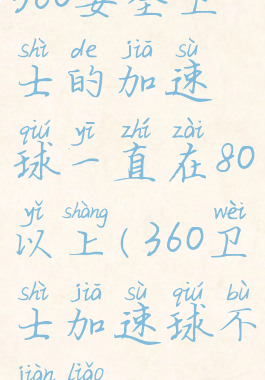 360安全卫
shì de jiā sù
士的加速
qiú yī zhí zài
球一直在80
yǐ shàng wèi
以上(360卫
shì jiā sù qiú bù
士加速球不
jiàn liǎo